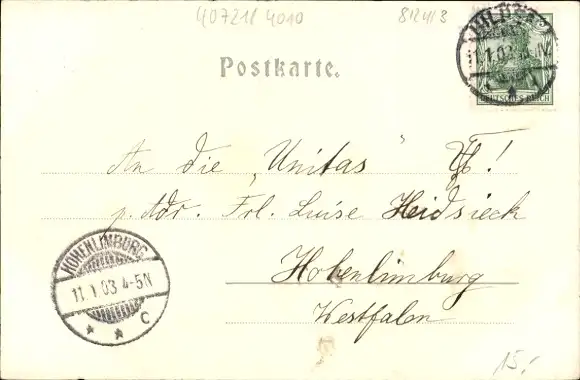 407218 4010
Postkarte.
DEUTSCHES REICH
11.1.03
An die „Unitas"
p. Adr. Frl. Luise Heidsieck
Hohenlimburg
Westfalen
HOHENLIMBURG
11.1.03 4-5N
* * c
15.-